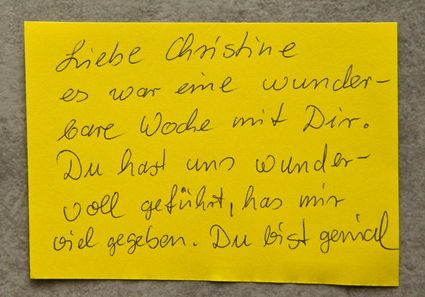 Liebe Christine
es war eine wunder-
bare Woche mit Dir.
Du hast uns wunder-
voll geführt, has mir
viel gegeben. Du bist genial